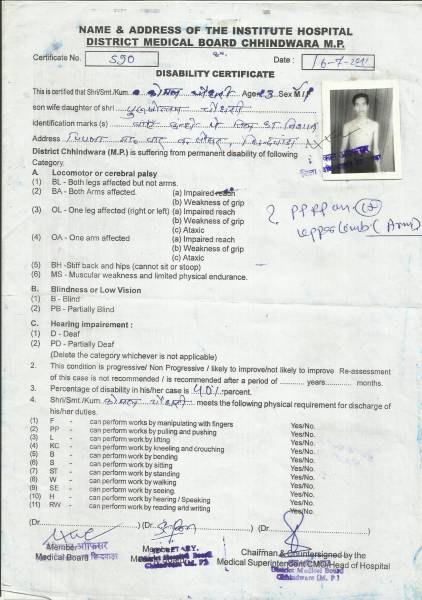 NAME & ADDRESS OF THE INSTITUTE HOSPITAL
DISTRICT MEDICAL BOARD CHHINDWARA M.P.
Certificate No. 590 Date : 16-7-2011
DISABILITY CERTIFICATE
This is certified that Shri/Smt./Kum कोमल चौधरी Age 23 Sex M/F
son wife daughter of shri चौधरी
identification marks (s)
Address
District Chhindwara (M.P.) is suffering from permanent disability of following
Category.
A. Locomotor or cerebral palsy
(1) BL - Both legs affected but not arms.
(2) BA - Both Arms affected. (a) Impaired reach
(b) Weakness of grip
(3) OL - One leg affected (right or left) (a) Impaired reach
(b) Weakness of grip
(c) Ataxic
(4) OA - One arm affected (a) Impaired reach
(b) Weakness of grip
(c) Ataxic
(Arm)
(5) BH -Stiff back and hips (cannot sit or stoop)
(6) MS - Muscular weakness and limited physical endurance.
B. Blindness or Low Vision
(1) B - Blind
(2) PB - Partially Blind
C. Hearing impairment :
(1) D - Deaf
(2) PD - Partially Deaf
(Delete the category whichever is not applicable)
2. This condition is progressive/ Non Progressive / likely to improve/not likely to improve Re-assessment
of this case is not recommended / is recommended after a period of ........... years........... months.
3. Percentage of disability in his/her case is 40% percent.
4. Shri/Smt./Kum कोमल चौधरी meets the following physical requirement for discharge of
his/her duties.
(1) F - can perform works by manipulating with fingers Yes/No.
(2) PP - can perform works by pulling and pushing Yes/No.
(3) L - can perform work by lifting Yes/No.
(4) KC - can perform work by kneeling and crouching Yes/No.
(5) B - can perform work by bending Yes/No.
(6) S - can perform work by sitting Yes/No.
(7) ST - can perform work by standing Yes/No.
(8) W - can perform work by walking Yes/No.
(9) SE - can perform work by seeing. Yes/No.
(10) H - can perform work by hearing / Speaking Yes/No.
(11) RW - can perform work by reading and writing Yes/No.
(Dr. ) (Dr. ) (Dr. )
Member Member Chairman & Countersigned by the
Medical Board Medical Board Medical Superintendent CMO/Head of Hospital
District Medical Board
Chhindwara (M. P.)
District Medical Board
Chhindwara (M. P.)